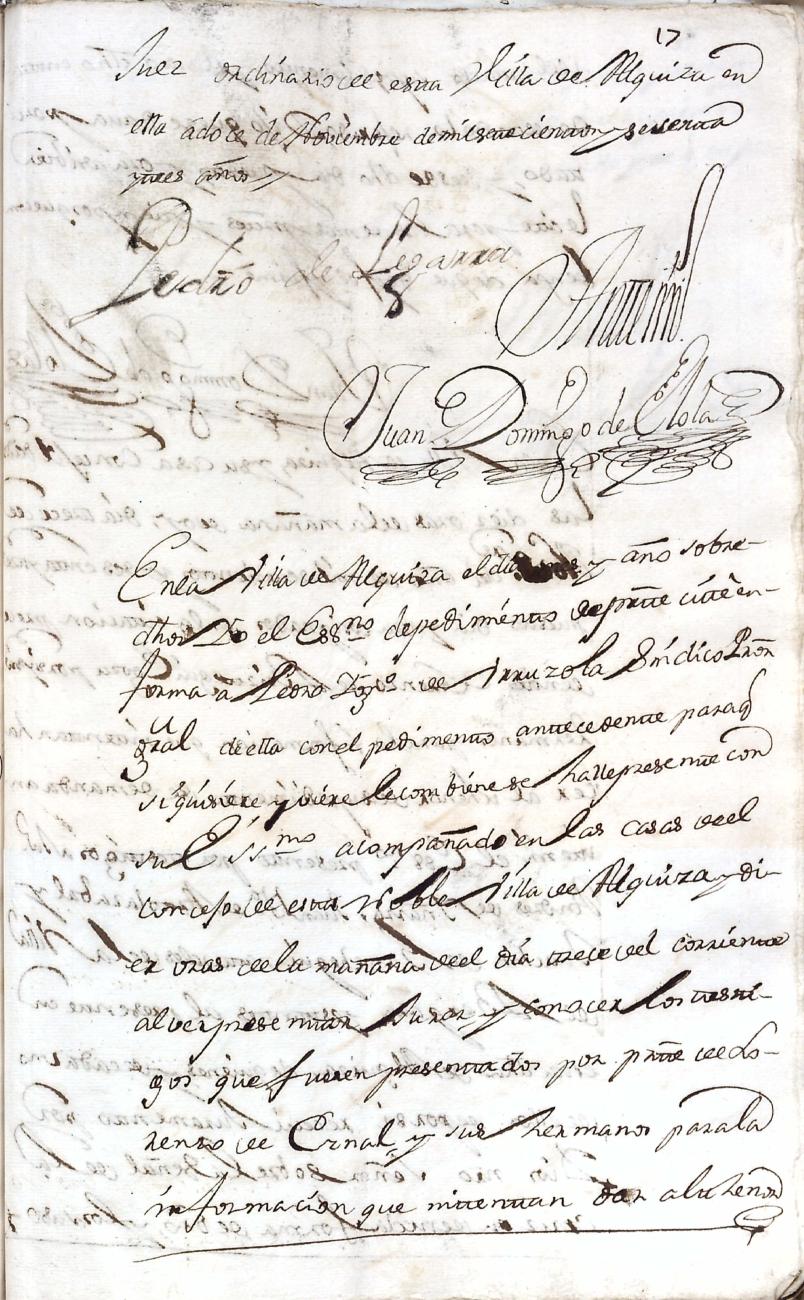 17
Juez ordinario de esta Villa de Alquiza en
ella a doce de Noviembre de mil setecientos y sesenta
y tres años
Pedro de Legarra
Antemi
Juan Domingo de Elola
En la Villa de Alquiza el dia mes y año sobre-
dhos Yo el Essno de pedimento de parte cite en
forma â Pedro Ygno de Yrruzola Sindico Pror
gral de ella con el pedimento antecedente para q
si quisiere y viere le combiene se halle presente con
su Essmo acompañado en las casas de el
Concejo de esta Noble Villa de Alquiza y di-
ez oras de la mañana de el dia trece de el corriente
al ver presentar Jurar y conocer los testi-
gos que fueren presentados por parte de Lo-
renzo de Ernal y sus hermanos para la
informacion que intentan dar a lu thenor